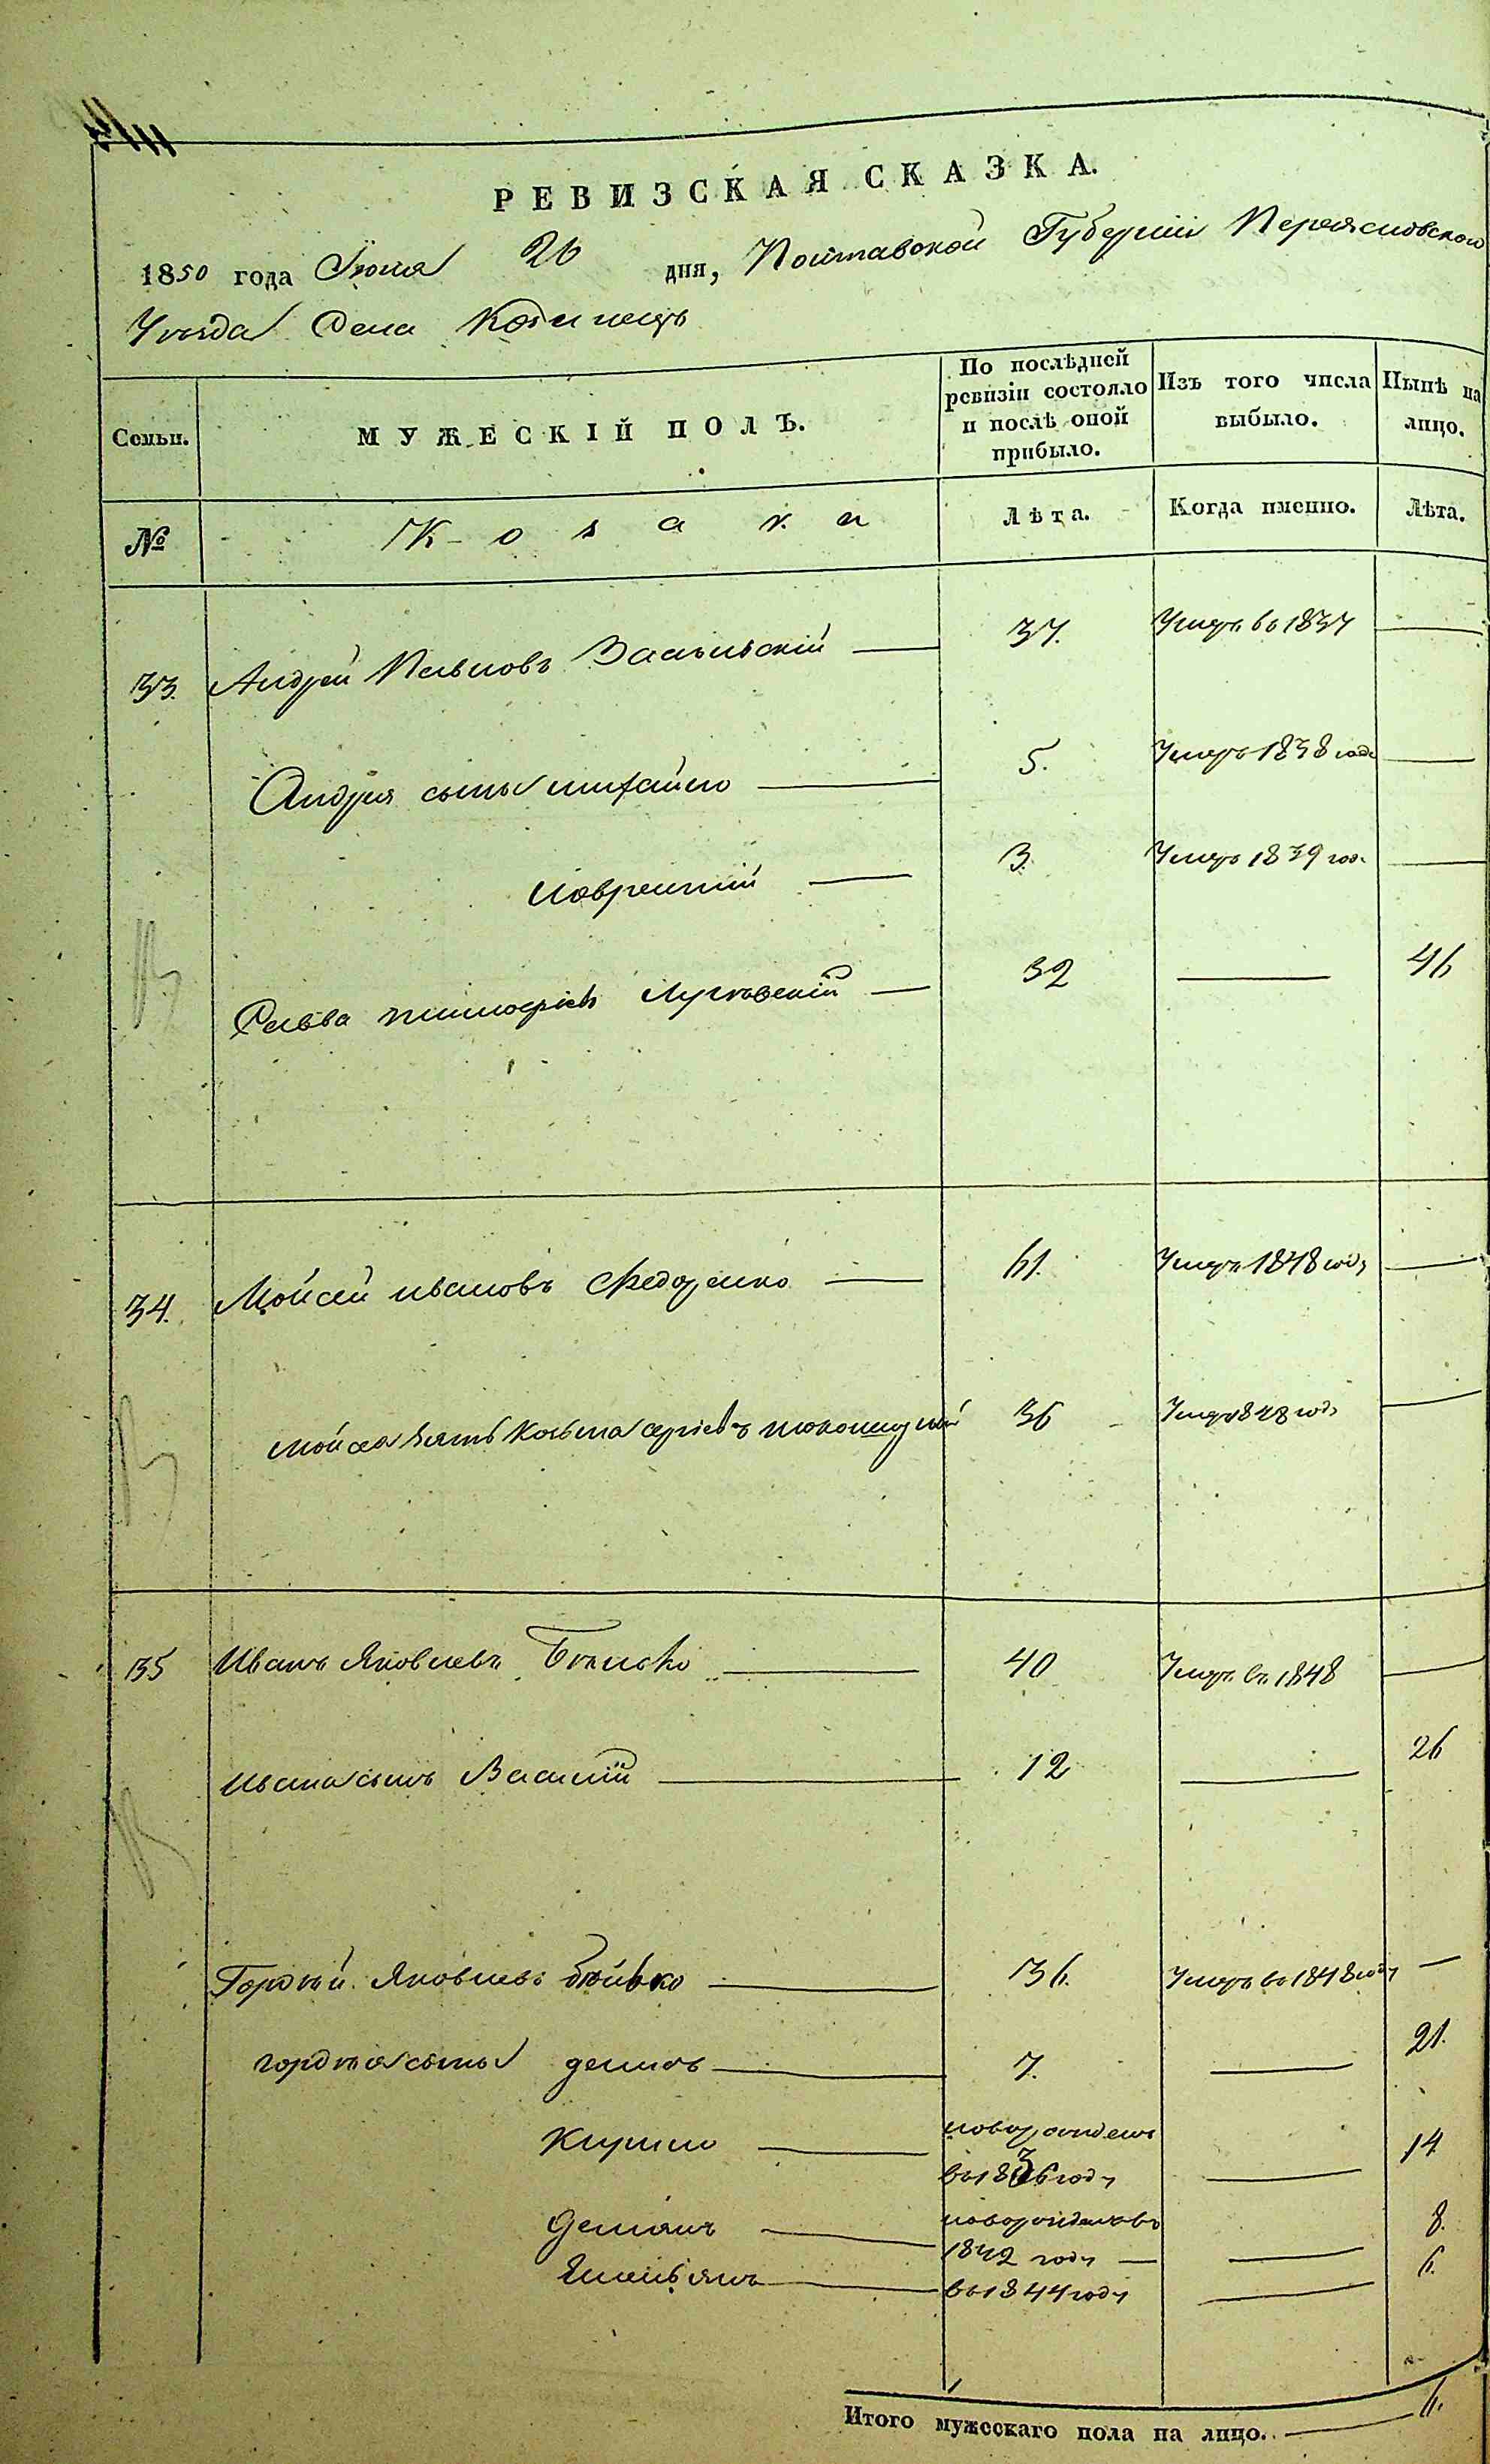 РЕВИЗСКАЯ СКАЗКА.
1850 года Іюня 26 дня, Полтавской Губерніи Переясловского
Уѣзда Села
Семьи. МУЖЕСКІЙ ПОЛЪ. По послѣдней ревизіи состояло и послѣ оной прибыло. Изъ того числа выбыло. Нынѣ на лицо.
№ Козаки Лѣта. Когда именно. Лѣта.
33. Андрей Павловъ 37. Умеръ въ 1837 —
Андрея сыны михайло — 5. Умеръ 1838 года —
лаврентій — 3. Умеръ 1839 год. —
Савва тимофіевъ — 32 — 46
34. Мойсей ивановъ Федоренко — 61. Умеръ 1848 году —
мойсея зять козьма сергіевъ 36 Умеръ 1848 году —
35 Иванъ Яковлевъ — 40 Умеръ въ 1848 —
ивана сынъ Василій — 12 — 26
Гордѣй Яковлевъ — 36. Умеръ въ 1848 году —
гордѣя сыны демидъ — 7. — 21.
Кирило — новорожденъ
въ 1836 году — 14
Демянъ — новорожденъ въ
1842 году — — 8.
Емельянъ — въ 1844 году — 6.
Итого мужескаго пола на лицо. — 6.